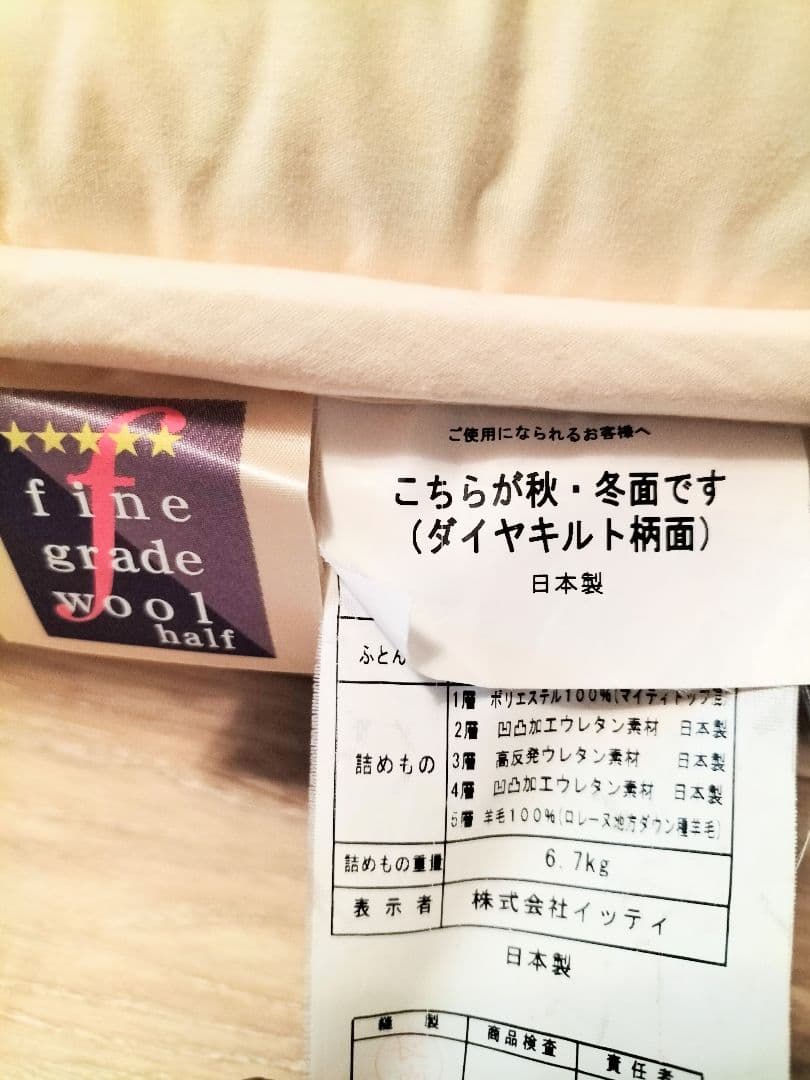 fine
grade
wool
half
ご使用になられるお客様へ
こちらが秋・冬面です
(ダイヤキルト柄面)
日本製
ふとん
詰めもの
1層 ポリエステル100%(マイティトップ
2層 凹凸加工ウレタン素材 日本製
3層 高反発ウレタン素材 日本製
4層 凹凸加工ウレタン素材 日本製
5層 羊毛100%(ロレーヌ地方ダウン種羊毛)
詰めもの重量 6.7kg
表示者 株式会社イッティ
日本製
縫製 商品検査 責任者